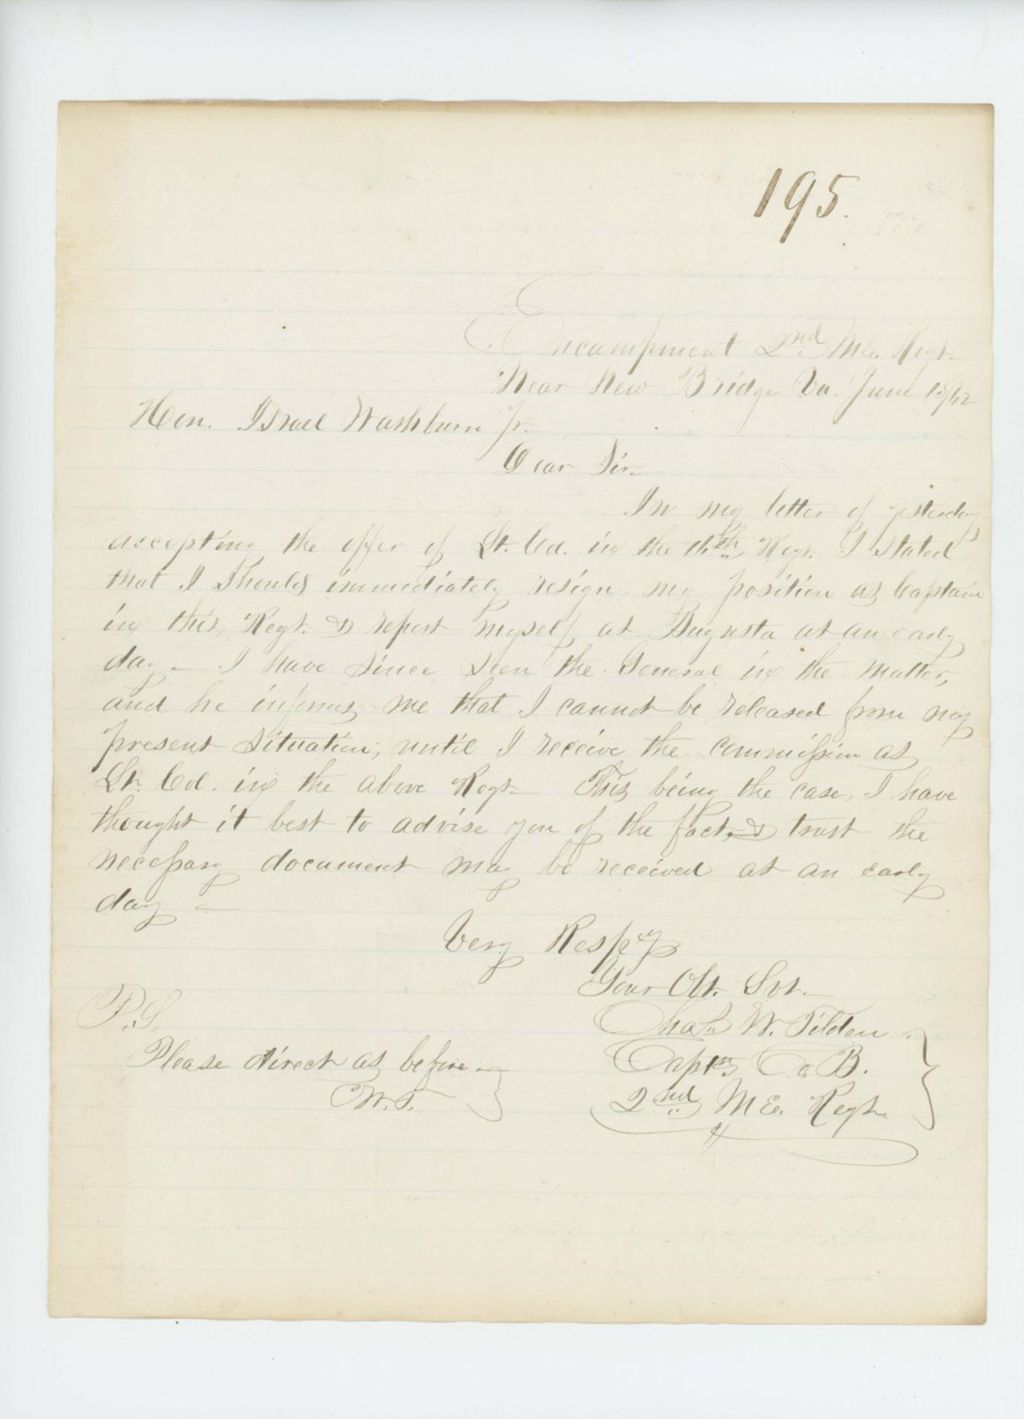 195.
Encampment 2nd Me. Regt.
Near New Bridge Va. June 15/62
Hon. Israel Washburn Jr.
Dear Sir
In my letter of yesterday
accepting the offer of Lt. Col. in the 16th Regt. I stated
that I should immediately resign my position as Captain
in this Regt. & report myself at Augusta at an early
day — I have since seen the General in the matter,
and he informs me that I cannot be released from my
present situation, until I receive the commission as
Lt. Col. in the above Regt. This being the case, I have
thought it best to advise you of the fact, & trust the
necessary document may be received at an early
day —
Very Respy
Your Obt. Svt.
Chas. W. Tilden
Captn Co B.
2nd Me. Regt.
P.S.
Please direct as before
W.T.